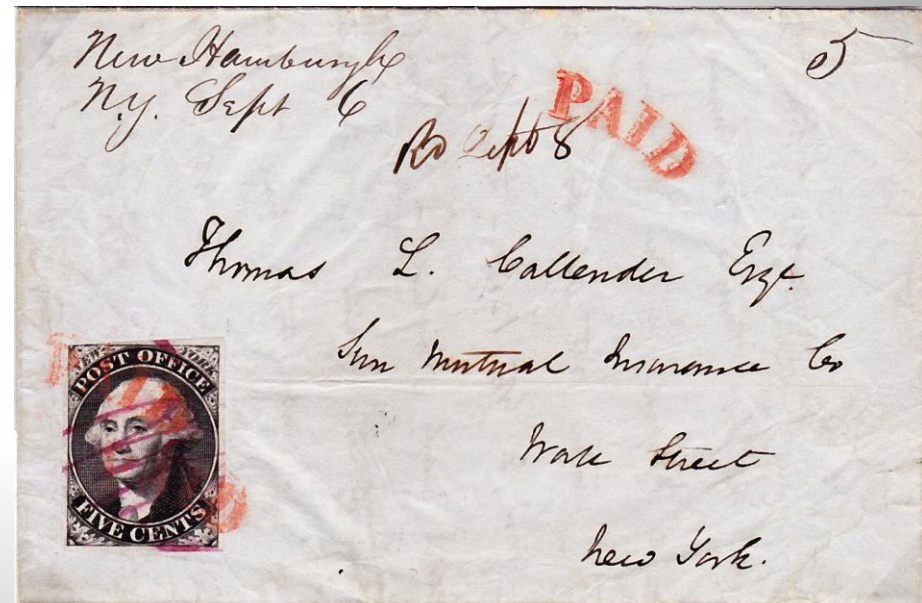 New Hamburgh
N.Y. Sept 6
5
PAID
Sept 8
Thomas L. Callender Esqr.
Sun Mutual Insurance Co
Wall Street
New York.
NEW YORK
POST OFFICE
FIVE CENTS